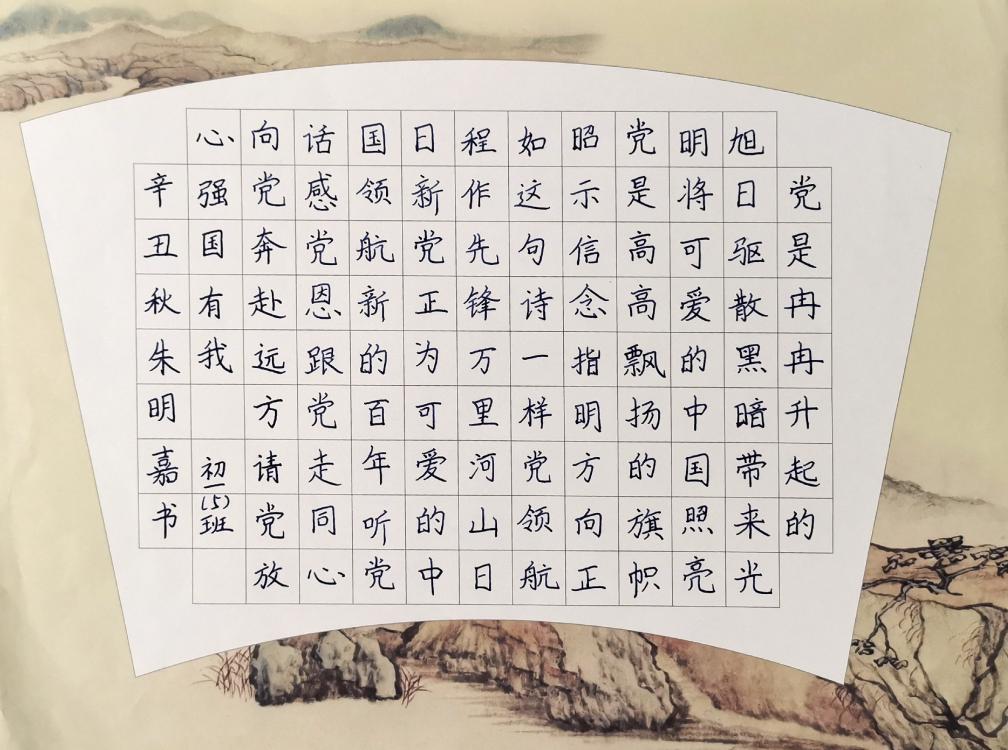 党是冉冉升起的
旭日驱散黑暗带来光
明将可爱的中国照亮
党是高高飘扬的旗帜
昭示信念指明方向正
如这句诗一样党领航
程作先锋万里河山日
日新党正为可爱的中
国领航新的百年听党
话感党恩跟党走同心
向党奔赴远方请党放
心强国有我
初一(5)班
辛丑秋朱明嘉书